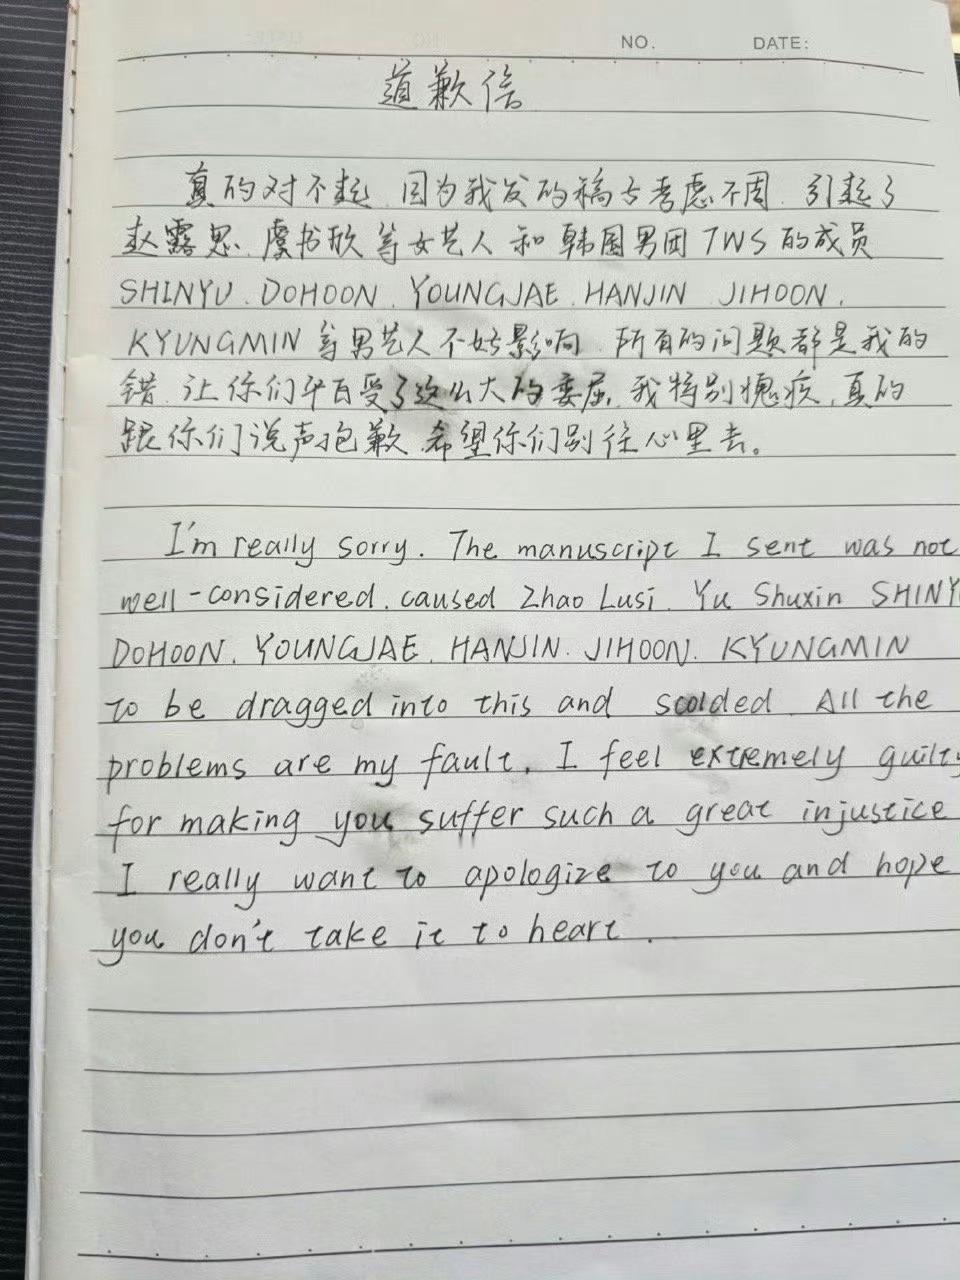 NO. DATE:
道歉信
真的对不起，因为我发的稿子考虑不周，引起了
赵露思、虞书欣等女艺人和韩国男团TWS的成员
SHINYU、DOHOON、YOUNGJAE、HANJIN、JIHOON、
KYUNGMIN等男艺人不好影响，所有的问题都是我的
错，让你们平白受了这么大的委屈，我特别愧疚，真的
跟你们说声抱歉，希望你们别往心里去。
I'm really sorry. The manuscript I sent was not
well-considered, caused Zhao Lusi, Yu Shuxin SHINY
DOHOON, YOUNGJAE, HANJIN, JIHOON, KYUNGMIN
to be dragged into this and scolded. All the
problems are my fault, I feel extremely guilty
for making you suffer such a great injustice
I really want to apologize to you and hope
you don't take it to heart.